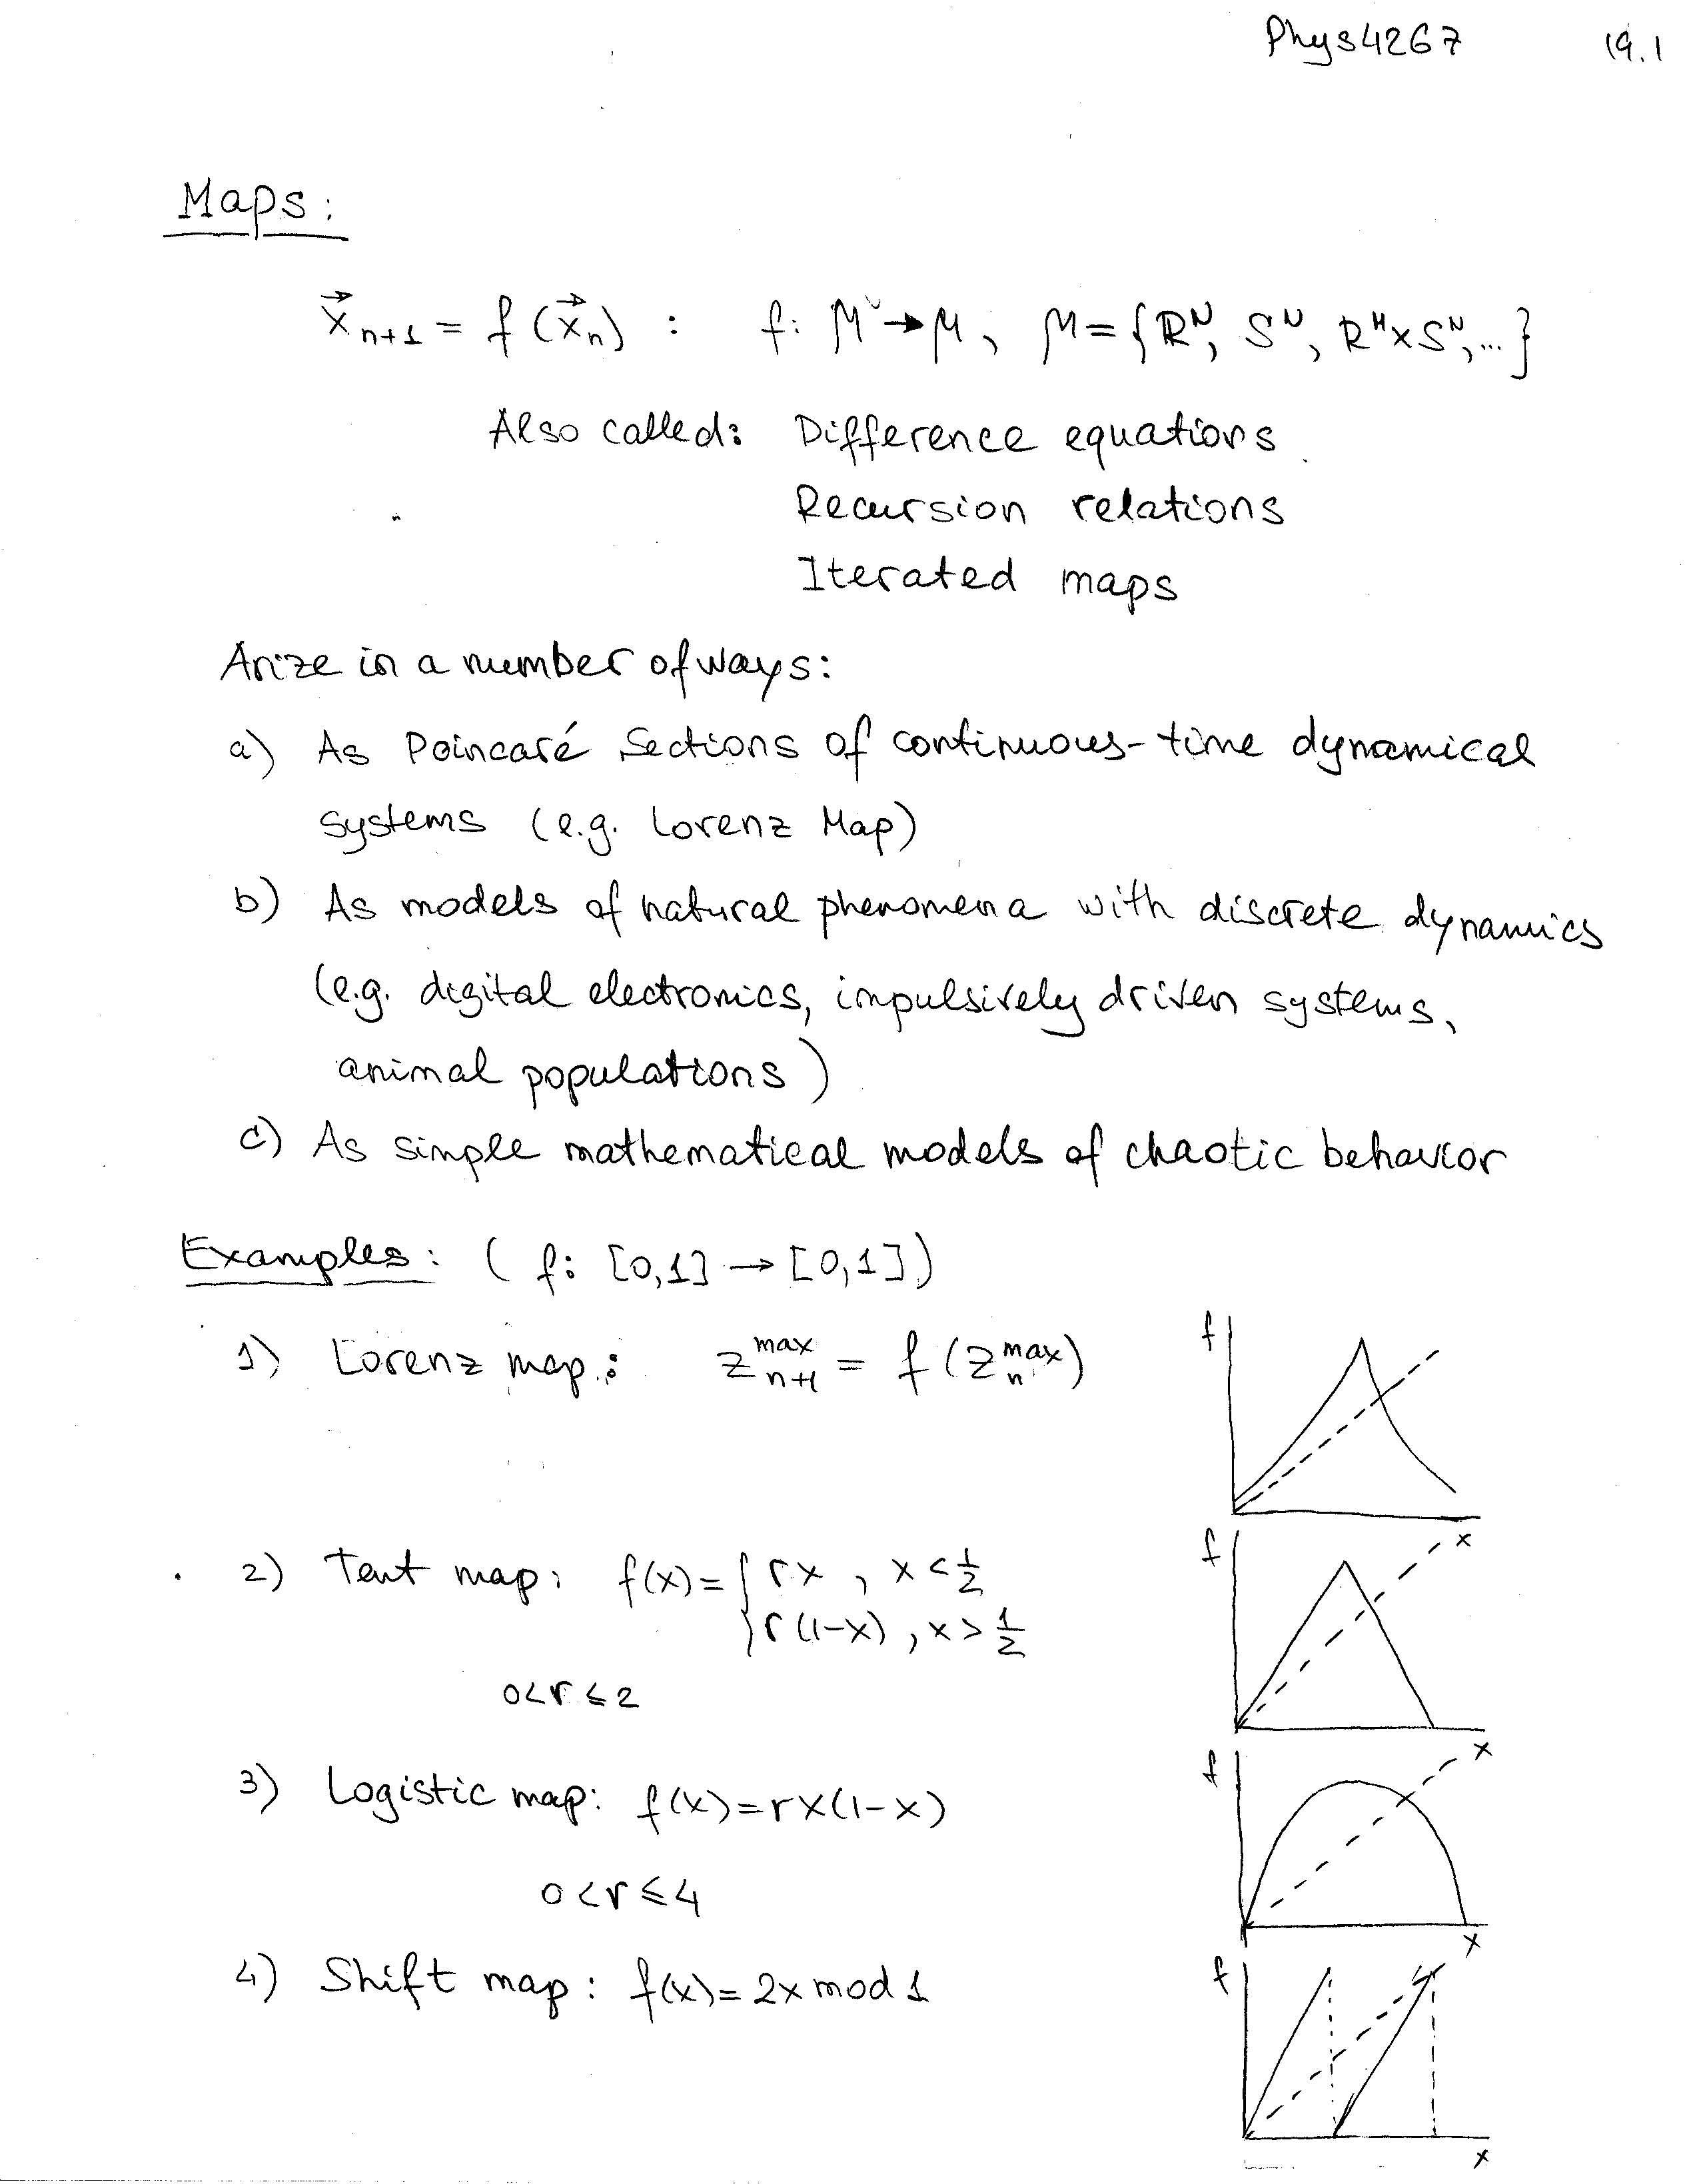 Phys4267 19.1
Maps:
x⃗ₙ₊₁ = f(x⃗ₙ) : f: M → M, M = {ℝᴺ, Sᴺ, ℝᴹ×Sᴺ, ...}
Also called: Difference equations
Recursion relations
Iterated maps
Arize in a number of ways:
a) As Poincaré Sections of continuous-time dynamical
systems (e.g. Lorenz Map)
b) As models of natural phenomena with discrete dynamics
(e.g. digital electronics, impulsively driven systems,
animal populations)
c) As simple mathematical models of chaotic behavior
Examples: ( f: [0,1] → [0,1])
1) Lorenz map: z^max_{n+1} = f(z^max_n)
f
x
2) Tent map: f(x) = { rx , x < 1/2
r(1-x) , x > 1/2
0<r≤2
f
x
3) Logistic map: f(x)=rx(1-x)
0<r≤4
f
x
4) Shift map: f(x)= 2x mod 1
f
x